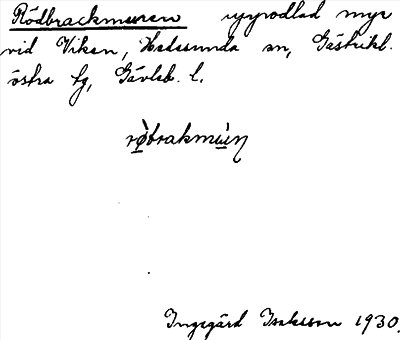 Rödbrackmuren uppodlad myr
vid Viken, Hedesunda sn, Gästrikl.
östra tg, Gävleb. l.
rø̀brakmu̇ri̇ṇ
Ingegärd Isaksson 1930.